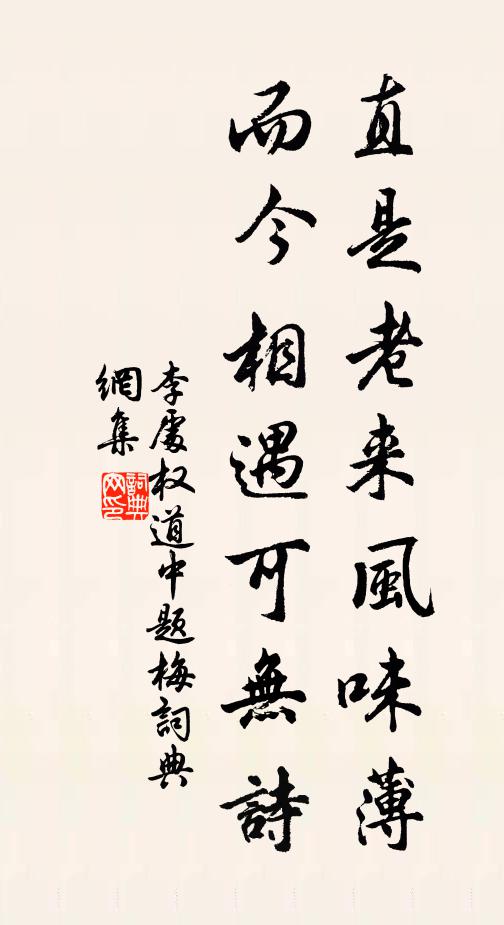 直是老来風味薄
而今相遇可無詩
李處权道中題梅詞典
網集
詞典网印